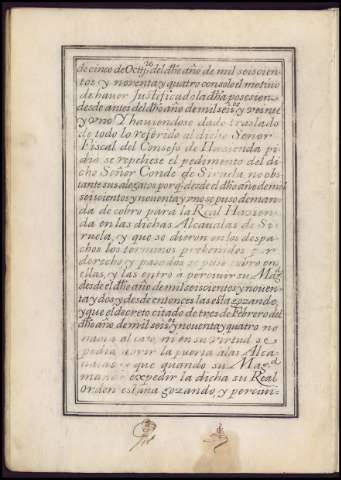 de cinco de Octtꝛᵉ del dho año de mil seiscien-
tos y noventa y quatro con solo el motivo
de haver Justificado la dha posesion
desde antes del dho año de mil seisᵗᵒˢ y veinte
y uno Y haviendose dado traslado
de todo lo referido al dicho Señor
Fiscal del Consejo de Hazienda pi-
dio se repeliese el pedimento del di-
cho Señor Conde de Siruela no obs-
tante sus alegatos porq̃ desde el dho año de mil
seiscientos y noventa y uno se puso deman-
da de cobro para la Real Hazien-
da en las dichas Alcavalas de Si-
ruela, y que se dieron en los despa-
chos los terminos prebenidos por
derecho y pasados se puso cobro en
ellas, y las entro a percivir su Magᵈ
desde el dho año de mil seiscientos y noven-
ta y dos y desde entonces las està gozando,
y que el decreto citado de tres de Febrero del
dho año de mil seisᵗᵒˢ y noventa y quatro no
hacia al caso, ni en su virtud se
podia abrir la puerta a las Alca-
valas y que quando su Magᵈ
mandò expedir la dicha su Real
orden estava gozando, y percivi-